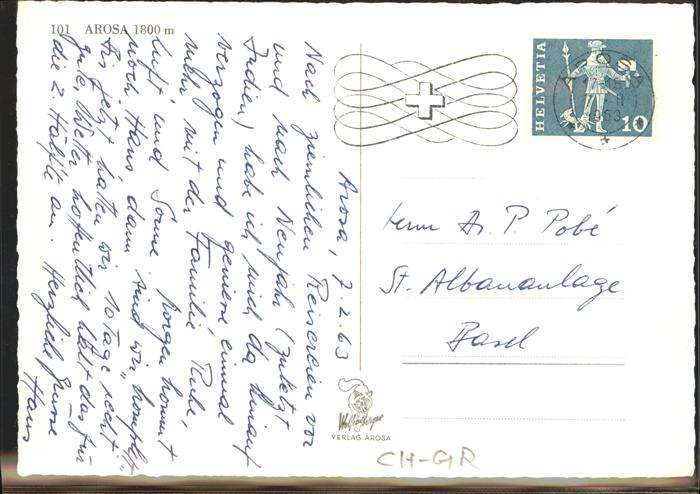 101 AROSA 1800 m
Arosa, 7.2.63
Nach ziemlichen Reisereien vor
und nach Neujahr (zuletzt
Indien) habe ich mich da hinauf
verzogen und geniesse einmal
mehr mit der Familie Ruhe,
Luft und Sonne. Morgen kommt
noch Hans dann sind wir komplett.
Bis jetzt hatten wir 10 Tage recht
gutes Wetter, hoffentlich hält das für
die 2. Hälfte an. Herzliche Grüsse
Hans
HELVETIA
10
AROSA
Herrn Dr. P. Pobé
St. Albananlage
Basel
VERLAG AROSA
CH-GR